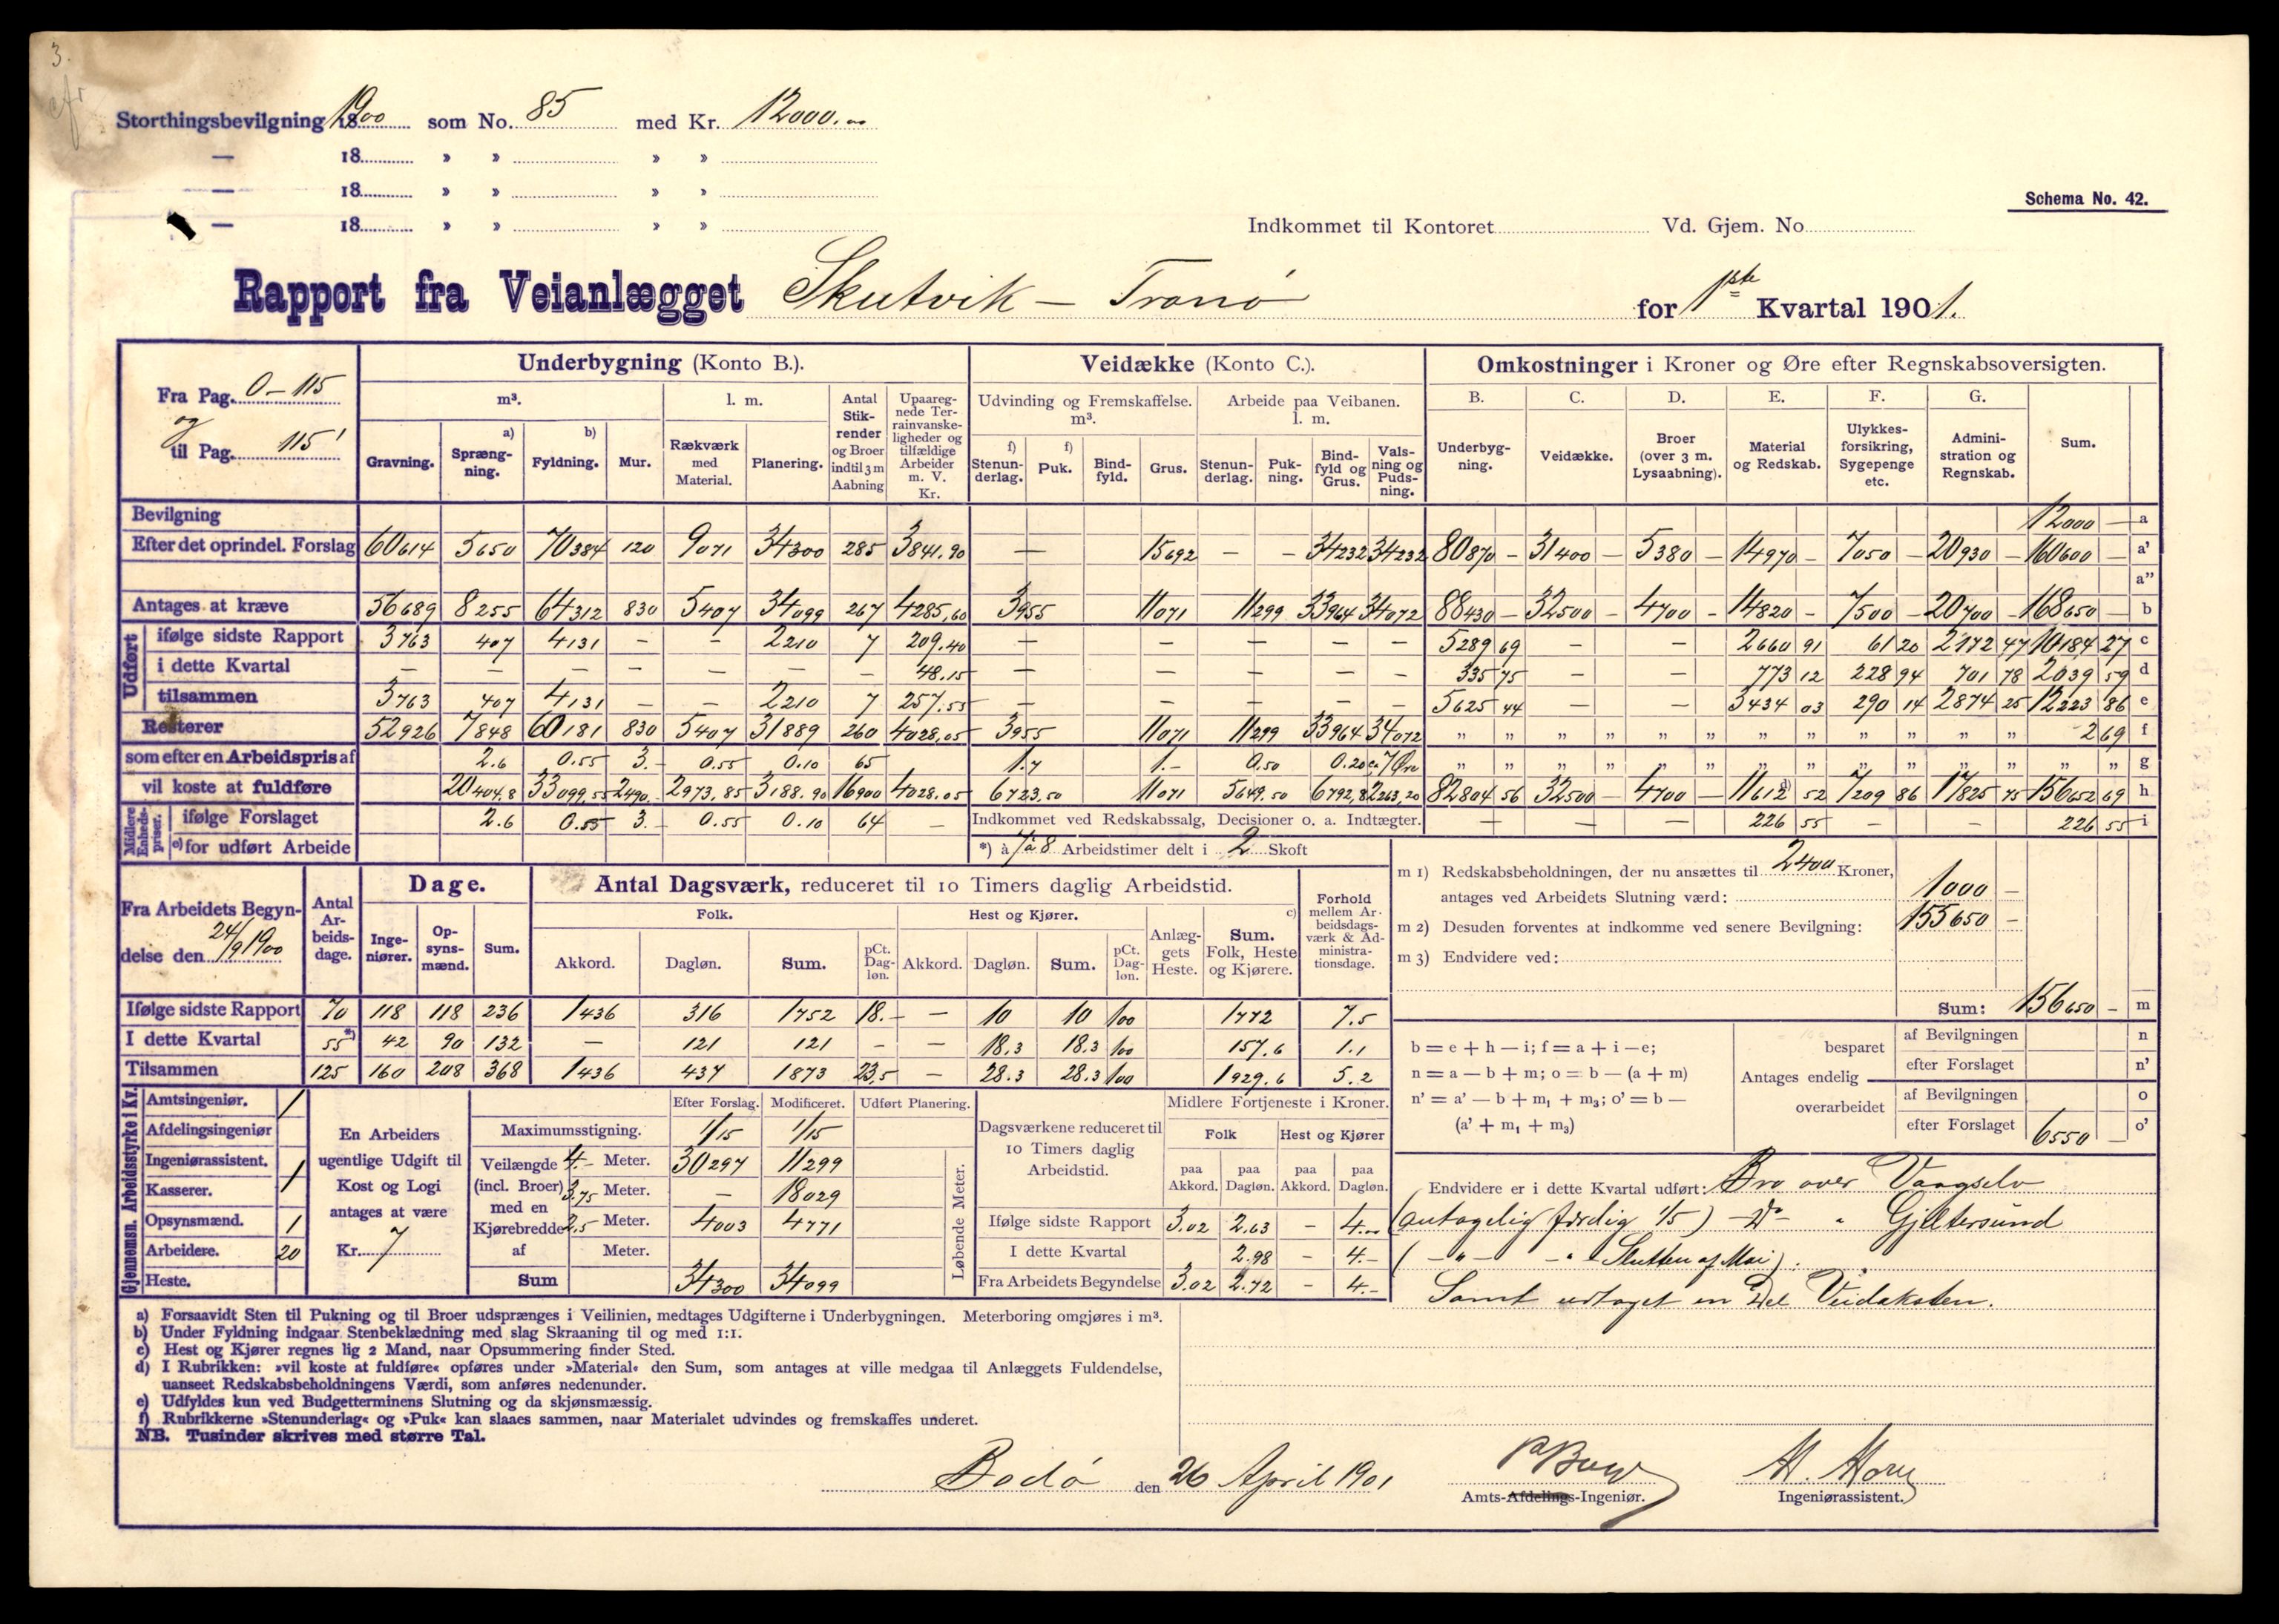 3.
Storthingsbevilgning 1900 som No. 85 med Kr. 12000.00
— 18 » » » »
— 18 » » » »
— 18 » » » »
Schema No. 42.
Indkommet til Kontoret Vd. Gjem. No
Rapport fra Veianlægget Skutvik — Tranø for 1ste Kvartal 1901.
Fra Pag. 0 — 115
og
til Pag. 115'
Underbygning (Konto B.). Veidække (Konto C.). Omkostninger i Kroner og Øre efter Regnskabsoversigten.
m³. l. m. Antal Stikrender og Broer indtil 3 m Aabning Upaaregnede Terrainvanskeligheder og tilfældige Arbeider m. V. Kr. Udvinding og Fremskaffelse. m³. Arbeide paa Veibanen. l. m. B. C. D. E. F. G.
Gravning. a) Sprængning. b) Fyldning. Mur. Rækværk med Material. Planering. f) Stenunderlag. f) Puk. Bindfyld. Grus. Stenunderlag. Pukning. Bindfyld og Grus. Valsning og Pudsning. Underbygning. Veidække. Broer (over 3 m. Lysaabning). Material og Redskab. Ulykkesforsikring, Sygepenge etc. Administration og Regnskab. Sum.
Bevilgning 12000 — a
Efter det oprindel. Forslag 60614 5650 70384 120 9071 34300 285 3841.90 — 15692 — — 34232 34232 80870 — 31400 — 5380 — 14970 — 7050 — 20930 — 160600 — a'
a"
Antages at kræve 56689 8255 64312 830 5407 34099 267 4285,60 3955 11071 11299 33964 34072 88430 — 32500 — 4700 — 14820 — 7500 — 20700 — 168650 — b
Udført
ifølge sidste Rapport 3763 407 4131 — — 2210 7 209.40 — — — — — 5289 69 — — 2660 91 61 20 2172 47 10184 27 c
i dette Kvartal — — — — — — — 48.15 — — — — — 335 75 — — 773 12 228 94 701 78 2039 59 d
tilsammen 3763 407 4131 — — 2210 7 257.55 — — — — — 5625 44 — — 3434 03 290 14 2874 25 12223 86 e
Resterer 52926 7848 60181 830 5407 31889 260 4028,05 3955 11071 11299 33964 34072 „ „ „ „ „ „ „ „ „ „ „ „ 2 69 f
som efter en Arbeidspris af 2.6 0.55 3.- 0.55 0.10 65 1.7 1.- 0.50 0.20 7 Øre „ „ „ „ „ „ „ „ „ „ „ „ „ „ g
vil koste at fuldføre 20404.8 33099,55 2490.- 2973,85 3188.90 16900 4028.05 6723.50 11071 5649.50 6792,8 2263,20 82804 56 32500 — 4700 — d) 11612 52 7209 86 17825 75 156652 69 h
Midlere Enhedspriser.
ifølge Forslaget 2.6 0.55 3.- 0.55 0.10 64 — Indkommet ved Redskabssalg, Decisioner o. a. Indtægter. — — — 226 55 — — 226 55 i
e) for udført Arbeide *) à 7 à 8 Arbeidstimer delt i 2 Skoft
Fra Arbeidets Begyndelse den 24/9 1900
Antal Arbeidsdage. Dage. Antal Dagsværk, reduceret til 10 Timers daglig Arbeidstid. Forhold mellem Arbeidsdagsværk & Administrationsdage.
Ingeniører. Opsynsmænd. Sum. Folk. Hest og Kjører. Anlæggets Heste. c) Sum. Folk, Heste og Kjørere.
Akkord. Dagløn. Sum. pCt. Dagløn. Akkord. Dagløn. Sum. pCt. Dagløn.
Ifølge sidste Rapport 70 118 118 236 1436 316 1752 18.- — 10 10 100 1772 7.5
I dette Kvartal 55 *) 42 90 132 — 121 121 — — 18.3 18.3 100 157.6 1.1
Tilsammen 125 160 208 368 1436 437 1873 23,5 — 28.3 28.3 100 1929.6 5.2
m 1) Redskabsbeholdningen, der nu ansættes til 2400 Kroner,
antages ved Arbeidets Slutning værd: 1000 —
m 2) Desuden forventes at indkomme ved senere Bevilgning: 155650 —
m 3) Endvidere ved:
Sum: 156650 — m
b = e + h — i; f = a + i — e;
n = a — b + m; o = b — (a + m)
n' = a' — b + m₁ + m₃; o' = b —
(a' + m₁ + m₃)
Antages endelig
besparet af Bevilgningen n
efter Forslaget n'
overarbeidet af Bevilgningen o
efter Forslaget 6550 — o'
Gjennemsn. Arbeidsstyrke i Kv.
Amtsingeniør. 1
Afdelingsingeniør
Ingeniørassistent. 1
Kasserer.
Opsynsmænd. 1
Arbeidere. 20
Heste.
En Arbeiders ugentlige Udgift til Kost og Logi antages at være
Kr. 7
Efter Forslag. Modificeret. Udført Planering.
Maximumsstigning. 1/15 1/15
Veilængde (incl. Broer) med en Kjørebredde af
4.- Meter. 30297 11299
3.75 Meter. — 18029
2,5 Meter. 4003 4771
Meter.
Sum 34300 34099
Løbende Meter.
Dagsværkene reduceret til 10 Timers daglig Arbeidstid. Midlere Fortjeneste i Kroner.
Folk Hest og Kjører
paa Akkord. paa Dagløn. paa Akkord. paa Dagløn.
Ifølge sidste Rapport 3.02 2.63 — 4.00
I dette Kvartal 2.98 — 4.-
Fra Arbeidets Begyndelse 3.02 2.72 — 4.-
Endvidere er i dette Kvartal udført: Bro over Vaagselv
(antagelig færdig 1/5) — Do " Gjeltersund
( — " — — " Slutten af Mai).
Samt udtaget en Del Veidæksten.
a) Forsaavidt Sten til Pukning og til Broer udsprænges i Veilinien, medtages Udgifterne i Underbygningen. Meterboring omgjøres i m³.
b) Under Fyldning indgaar Stenbeklædning med slag Skraaning til og med 1:1.
c) Hest og Kjører regnes lig 2 Mand, naar Opsummering finder Sted.
d) I Rubrikken: »vil koste at fuldføre« opføres under »Material« den Sum, som antages at ville medgaa til Anlæggets Fuldendelse,
uanseet Redskabsbeholdningens Værdi, som anføres nedenunder.
e) Udfyldes kun ved Budgetterminens Slutning og da skjønsmæssig.
f) Rubrikkerne »Stenunderlag« og »Puk« kan slaaes sammen, naar Materialet udvindes og fremskaffes underet.
NB. Tusinder skrives med større Tal.
Bodø den 26 April 1901
Amts-Afdelings-Ingeniør. Ingeniørassistent.